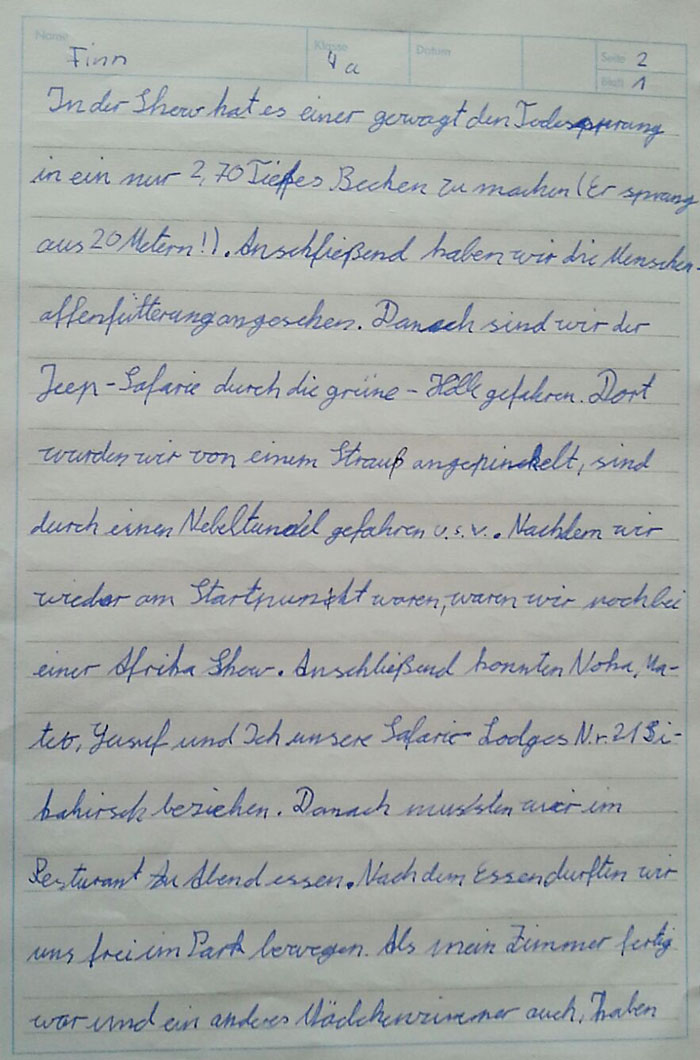 Name Finn Klasse 4a Datum Seite 2
Blatt 1
In der Show hat es einer gewagt den Todessprung
in ein nur 2,70 Tiefes Becken zu machen (Er sprang
aus 20 Metern!). Anschließend haben wir die Menschen-
affenfütterung angesehen. Danach sind wir der
Jeep-Safarie durch die grüne-Hölle gefahren. Dort
wurden wir von einem Strauß angepinckelt, sind
durch einen Nebeltunnel gefahren u.s.v.. Nachdem wir
wieder am Startpunkt waren, waren wir noch bei
einer Afrika Show. Anschließend konnten Noha,
Yusuf und Ich unsere Safarie Lodges N.r. 21
beziehen. Danach mussten wir im
Resturant zu Abend essen. Nach dem Essen durften wir
uns frei im Park bewegen. Als mein Zimmer fertig
war und ein anderes Mädchenzimmer auch, haben